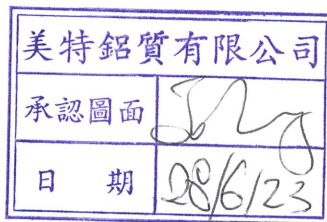 美特鋁質有限公司
承認圖面
日 期 28/6/23